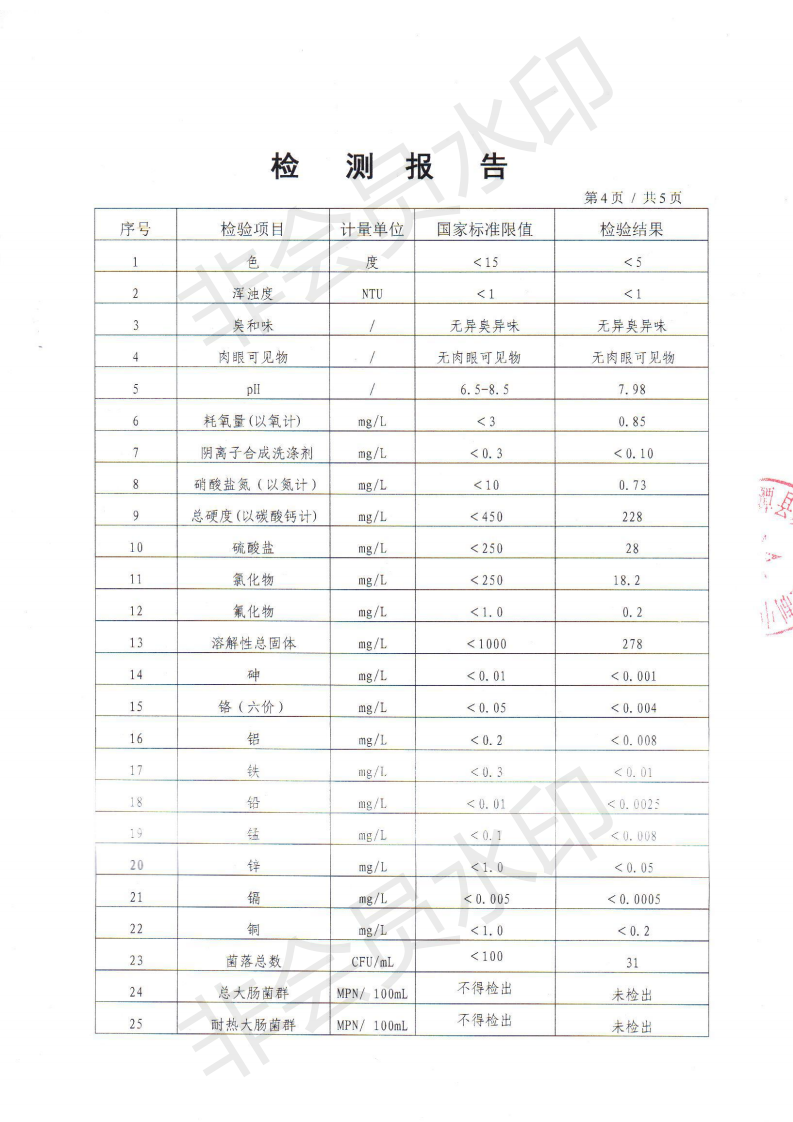 检 测 报 告
第4页 / 共5页
序号 检验项目 计量单位 国家标准限值 检验结果
1 色 度 <15 <5
2 浑浊度 NTU <1 <1
3 臭和味 / 无异臭异味 无异臭异味
4 肉眼可见物 / 无肉眼可见物 无肉眼可见物
5 pH / 6.5-8.5 7.98
6 耗氧量(以氧计) mg/L <3 0.85
7 阴离子合成洗涤剂 mg/L <0.3 <0.10
8 硝酸盐氮（以氮计） mg/L <10 0.73
9 总硬度(以碳酸钙计) mg/L <450 228
10 硫酸盐 mg/L <250 28
11 氯化物 mg/L <250 18.2
12 氟化物 mg/L <1.0 0.2
13 溶解性总固体 mg/L <1000 278
14 砷 mg/L <0.01 <0.001
15 铬（六价） mg/L <0.05 <0.004
16 铝 mg/L <0.2 <0.008
17 铁 mg/L <0.3 <0.01
18 铅 mg/L <0.01 <0.0025
19 锰 mg/L <0.1 <0.008
20 锌 mg/L <1.0 <0.05
21 镉 mg/L <0.005 <0.0005
22 铜 mg/L <1.0 <0.2
23 菌落总数 CFU/mL <100 31
24 总大肠菌群 MPN/ 100mL 不得检出 未检出
25 耐热大肠菌群 MPN/ 100mL 不得检出 未检出
非会员水印
非会员水印
潭县